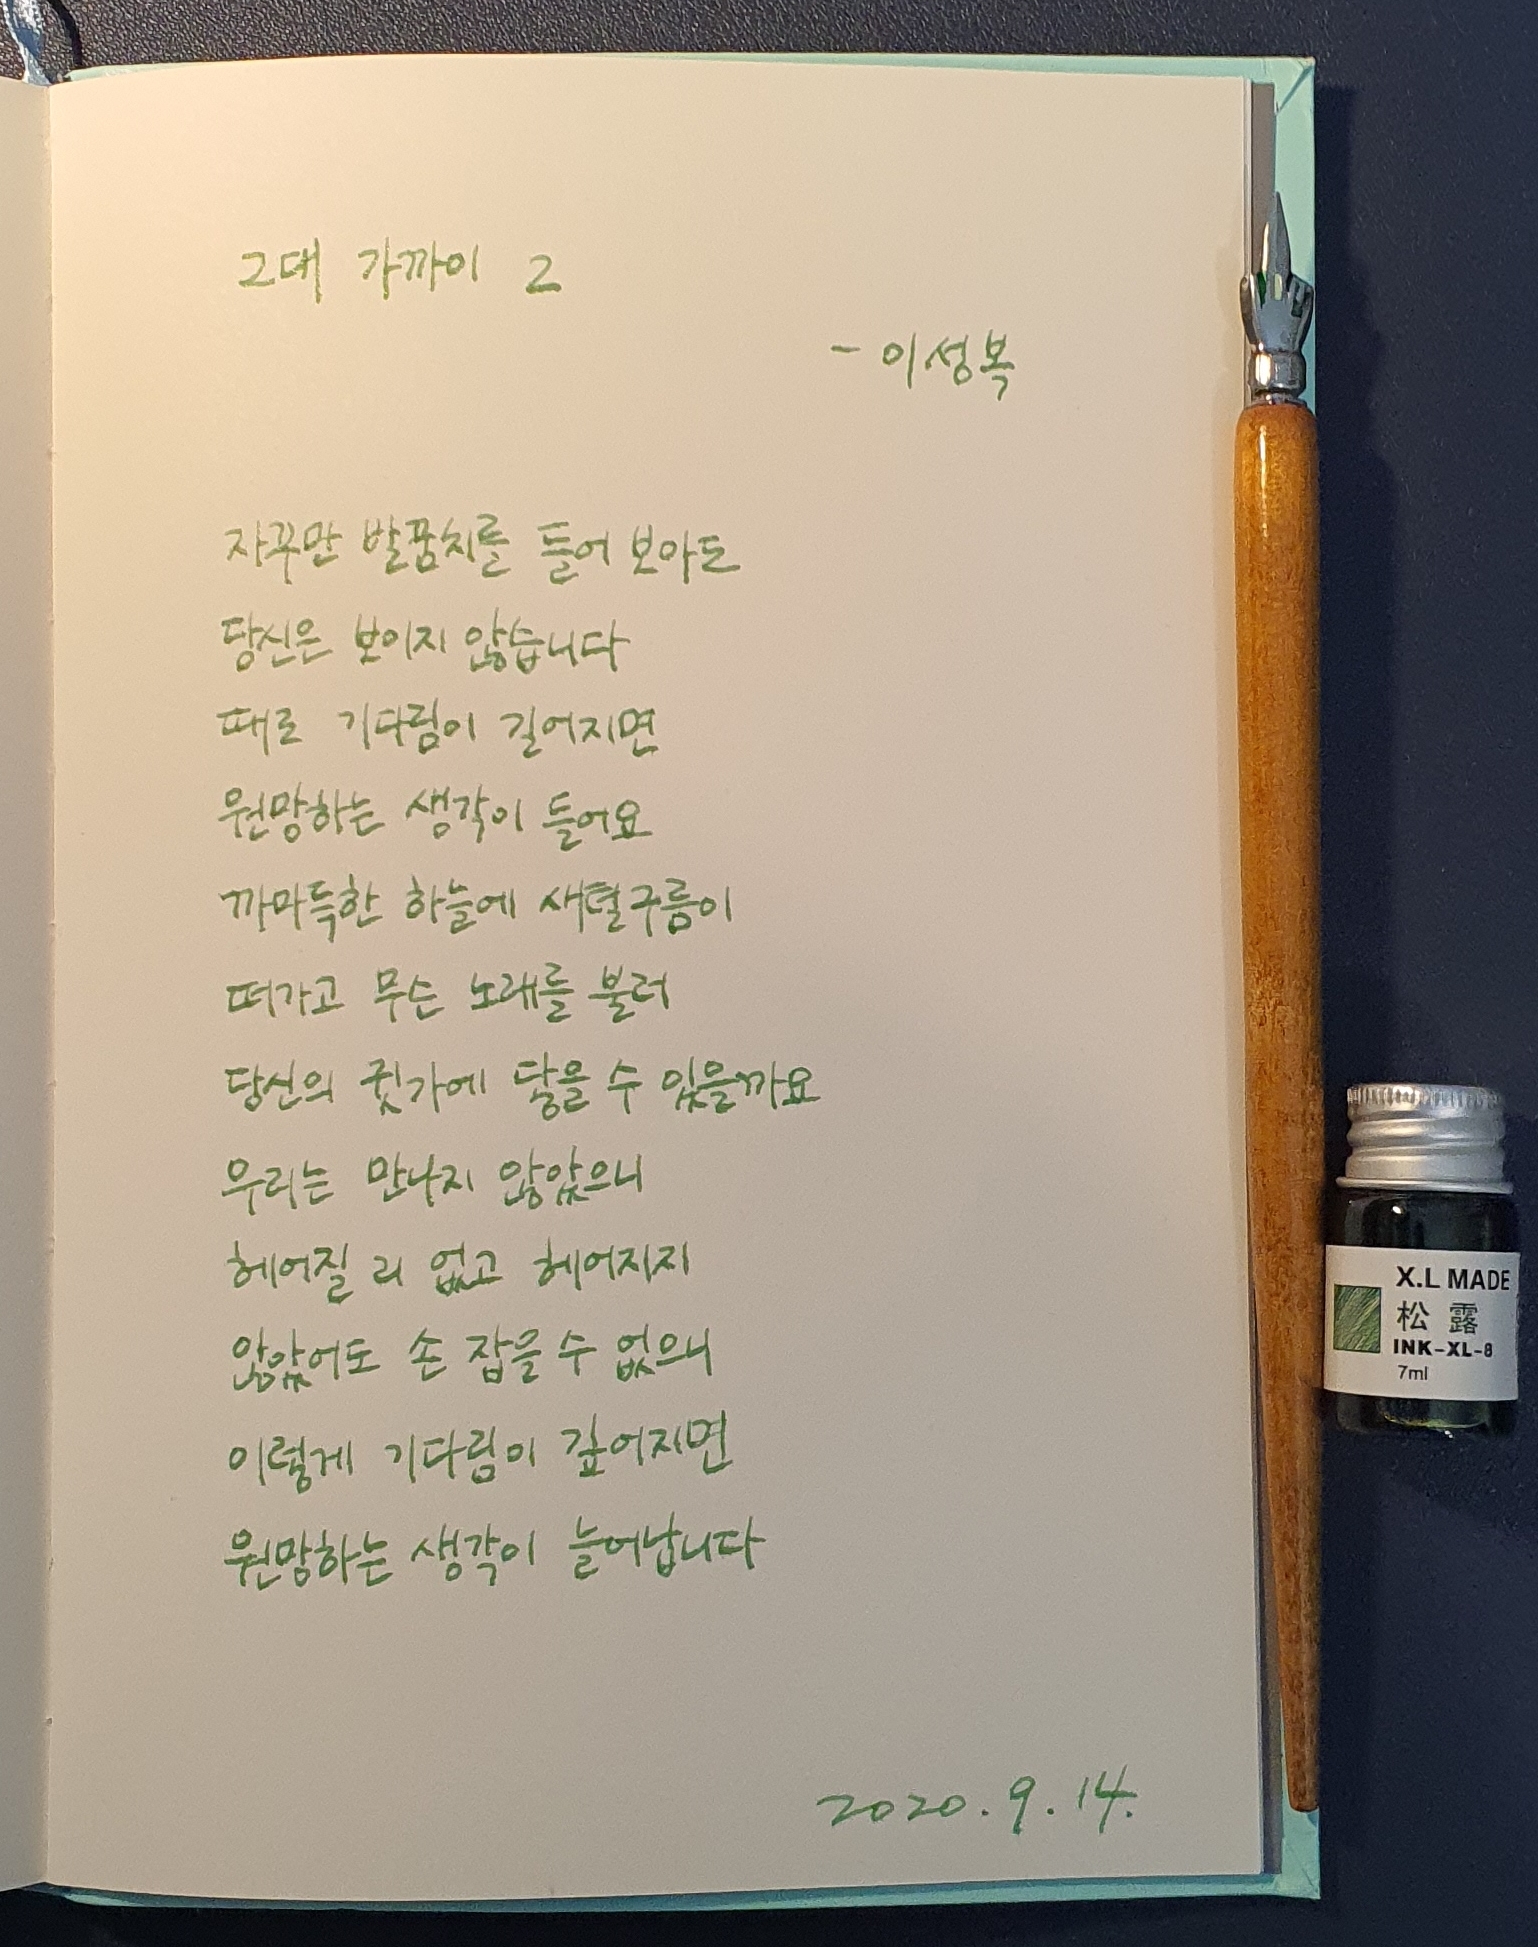 그대 가까이 2
- 이성복
자꾸만 발꿈치를 들어 보아도
당신은 보이지 않습니다
때로 기다림이 길어지면
원망하는 생각이 들어요
까마득한 하늘에 새털구름이
떠가고 무슨 노래를 불러
당신의 귓가에 닿을 수 있을까요
우리는 만나지 않았으니
헤어질 리 없고 헤어지지
않았어도 손 잡을 수 없으니
이렇게 기다림이 깊어지면
원망하는 생각이 늘어납니다
2020. 9. 14.
X.L MADE
松露
INK-XL-8
7ml